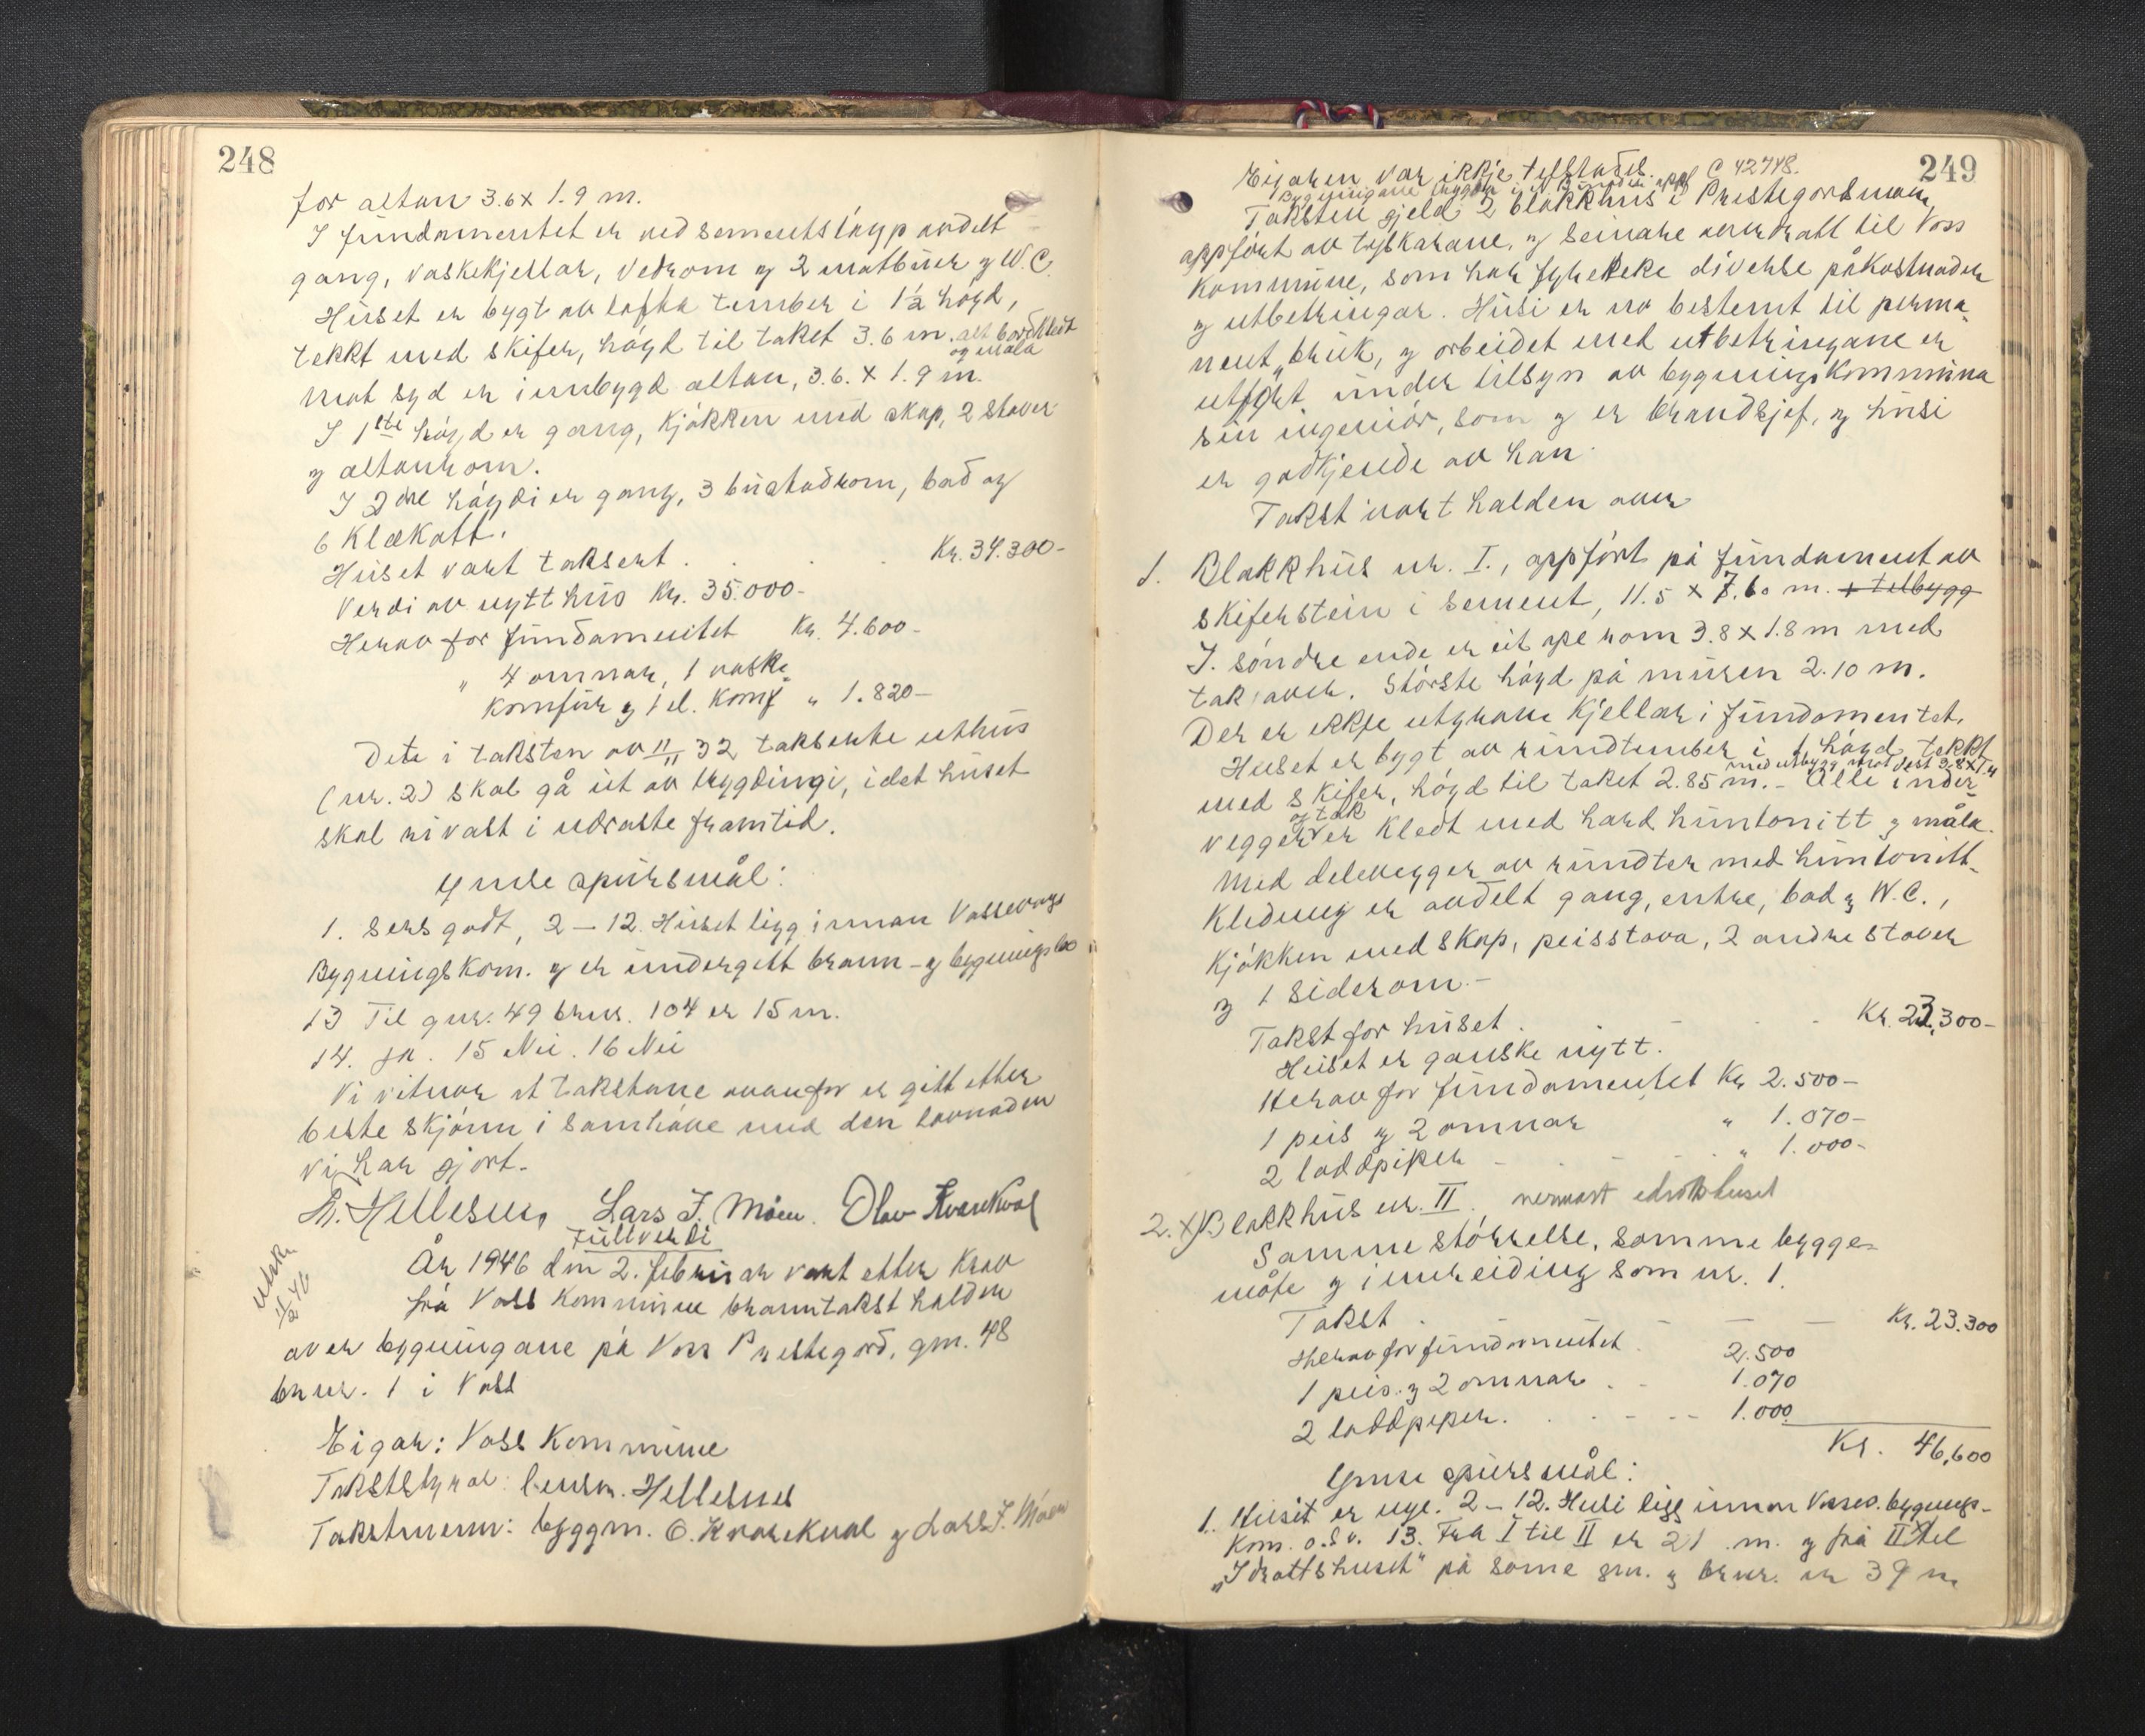 248
for altan 3.6 x 1.9 m.
I fundamentet er ved sementstøyp avdelt
gang, vaskekjellar, vedrom og 2 matbuer og W.C.
Huset er bygt av lafta tømber i 1½ høgd,
tekkt med skifer, høgd til taket 3.6 m. alt bordkledt
og måla
Mot syd er innbygd altan, 3.6. x 1.9 m.
I 1ste høgd er gang, kjøkken med skap, 2 stover
og altanrom.
I 2dre høgdi er gang, 3 bustadrom, bad og
6 klækott.
Huset vart taksert . . . Kr. 34.300-
Verdi av nytt hus Kr. 35.000-
Herav for fundamentet Kr. 4.600-
" 4 omnar, 1 vaske
komfur og 1 el. komf " 1.820-
Dete i taksten av 11/11 32 takserte uthus
(nr. 2) skal gå ut av trygdingi, idet huset
skal rivast i nedraste framtid.
Ymse spursmål:
1. Sers godt, 2-12. Huset ligg innan Vossevangs
Bygningskom. og er undergitt brann- og bygningslov
13 Til gnr. 49 brnr. 104 er 15 m.
14. Ja. 15 Nei. 16 Nei
Vi vitnar at takstane ovanfor er gitt etter
beste skjønn i samhøve med den lovnaden
vi har gjort.
Hellesnes Lars J. Møen. Olav Kvarekval
Fullverdi
År 1946 den 2. februar vart etter krav
frå Voss kommune branntakst halden
over bygningane på Voss Prestegard, gnr. 48
brnr. 1 i Voss
Eigar: Voss Kommune
Takststyrar: lensm. Hellesnes
Takstmenn: byggm. O. Kvarekval og Lars J. Møen
11/2 46
249
Eigaren var ikkje tilstades. C 42748.
Taksten gjeld 2 blokkhus i Prestegardsmoen,
oppført av tyskarane, og seinare overdratt til Voss
kommune, som har diverse påkostnader
og utbetringar. Husi er no bestemt til perma-
nent bruk, og arbeidet med utbetringane er
utført under tilsyn av bygningskommuna
sin ingeniør, som og er brandsjef, og husi
er godkjende av han.
Takst vart halden over
1. Blokkhus nr. I., oppført på fundament av
skiferstein i sement, 11.5 x 7.60 m. + tilbygg
I. søndre ende er eit ope rom 3.8 x 1.8 m med
tak over. Største høgd på muren 2.10 m.
Der er ikkje utgraven kjellar i fundamentet.
Huset er bygt av rundtømber i 1 høgd, tekkt
med utbygg mot vest
med skifer, høgd til taket 2.85 m. - Alle inder-
og tak
vegger er kledt med hard huntonitt og måla.
Med delevegger av rundtør med huntonitt-
kledning er avdelt gang, entre, bad og W.C.,
kjøkken med skap, peisstova, 2 andre stover
og 1 siderom.-
Takst for huset . . . Kr. 23,300-
Huset er ganske nytt.
Herav for fundamentet Kr 2.500-
1 peis og 2 omnar " 1.070-
2 loddpiper " 1.000-
2. x) Blokkhus nr. II. nermast idrottshuset
Samme størrelse, samme bygge-
måte og innreiding som nr. 1.
Takst . . . Kr. 23.300
Herav for fundamentet . 2.500
1 peis. og 2 omnar . . 1.070
2 loddpiper. . . 1.000
Kr. 46,600
Ymse spursmål:
1. Husit er nye. 2-12. Husi ligg innan Vossev. bygnings-
kom. o.s.v. 13. Frå I til II er 21 m. og frå II til
"Idrottshuset" på same gnr. og brnr. er 39 m